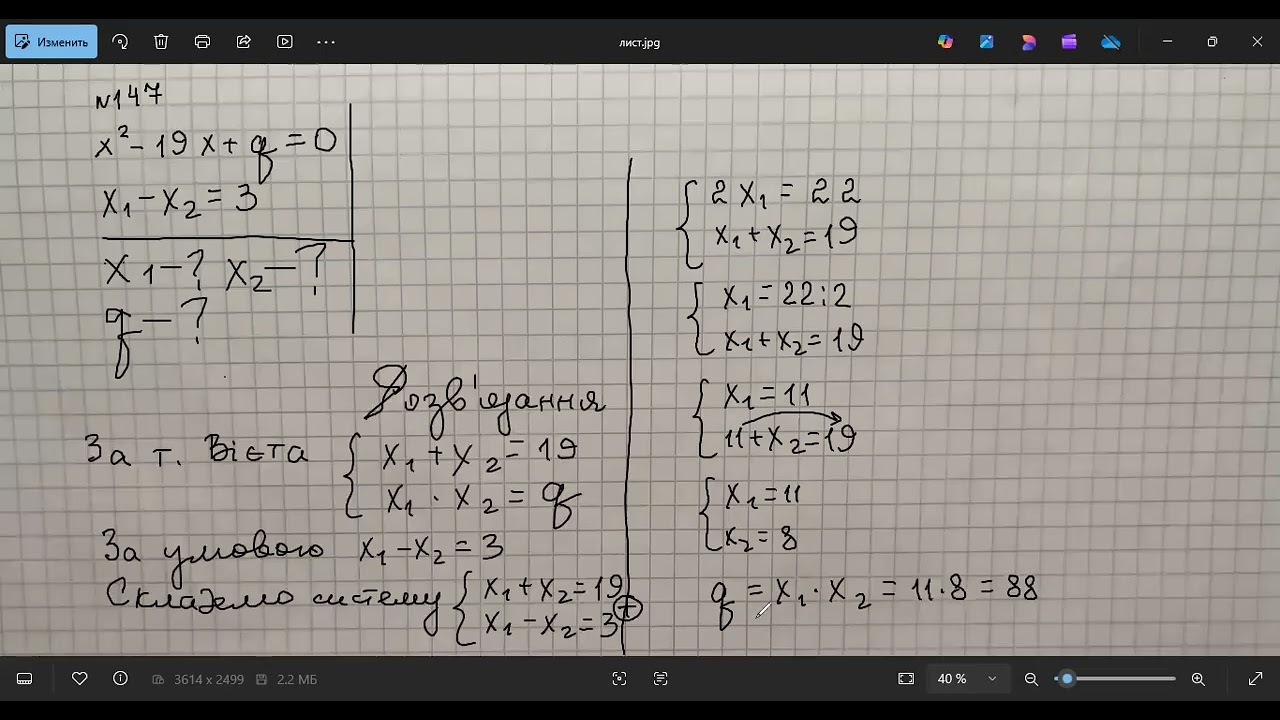 Изменить
лист.jpg
N147
x² - 19x + q = 0
x₁ - x₂ = 3
x₁ - ? x₂ - ?
q - ?
Розв'язання
За т. Вієта { x₁ + x₂ = 19
x₁ · x₂ = q
За умовою x₁ - x₂ = 3
Складемо систему { x₁ + x₂ = 19
x₁ - x₂ = 3 +
{ 2x₁ = 22
x₁ + x₂ = 19
{ x₁ = 22 : 2
x₁ + x₂ = 19
{ x₁ = 11
11 + x₂ = 19
{ x₁ = 11
x₂ = 8
q = x₁ · x₂ = 11 · 8 = 88
3614 x 2499 2.2 МБ
40 %